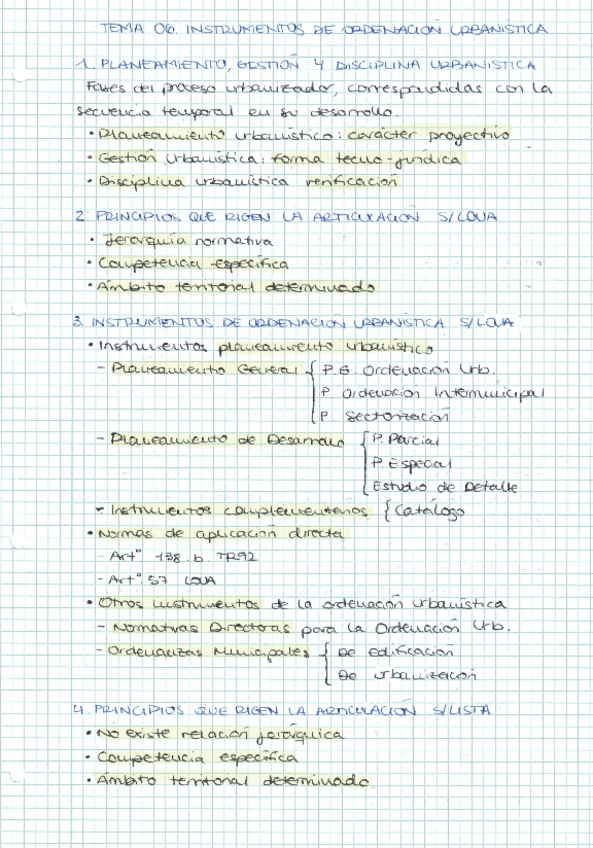 TEMA 06. INSTRUMENTOS DE ORDENACIÓN URBANÍSTICA
1. PLANEAMIENTO, GESTIÓN Y DISCIPLINA URBANÍSTICA
Fases del proceso urbanizador, correspondidas con la
secuencia temporal en su desarrollo.
• Planeamiento urbanístico: carácter proyectivo
• Gestión urbanística: forma tecno-jurídica
• Disciplina urbanística verificación
2. PRINCIPIOS QUE RIGEN LA ARTICULACIÓN S/LOUA
• Jerarquía normativa
• Competencia específica
• Ámbito territorial determinado
3. INSTRUMENTOS DE ORDENACIÓN URBANÍSTICA S/LOUA
• Instrumentos planeamiento urbanístico
- Planeamiento General { P.G. Ordenación Urb.
P. Ordenación Intermunicipal
P. Sectorización
- Planeamiento de Desarrollo { P. Parcial
P. Especial
Estudio de Detalle
- Instrumentos complementarios { Catálogo
• Normas de aplicación directa
- Artº 138.b. TR92
- Artº. 57 LOUA
• Otros instrumentos de la ordenación urbanística
- Normativas Directoras para la Ordenación Urb.
- Ordenanzas Municipales { De edificación
De urbanización
4. PRINCIPIOS QUE RIGEN LA ARTICULACIÓN S/LISTA
• No existe relación jerárquica
• Competencia específica
• Ámbito territorial determinado